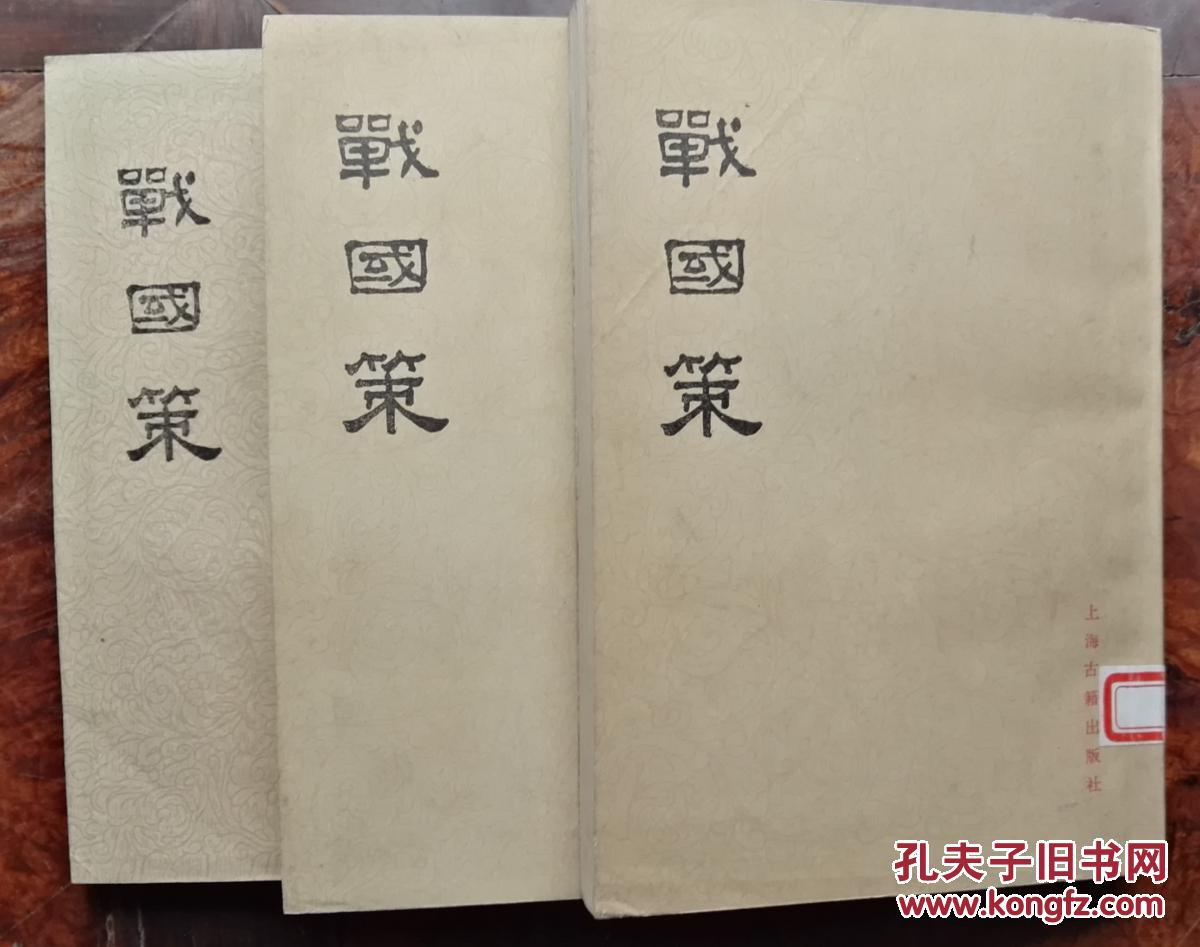 戰國策
戰國策
戰國策
上海古籍出版社
孔夫子旧书网
www.kongfz.com